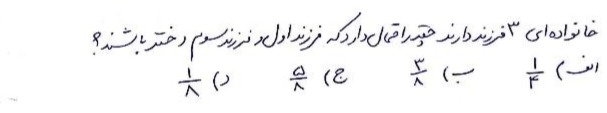 خانواده‌ای ۳ فرزند دارند چقدر احتمال دارد که فرزند اول و فرزند سوم دختر باشند؟
الف) ۱/۴ ب) ۳/۸ ج) ۵/۸ د) ۱/۸